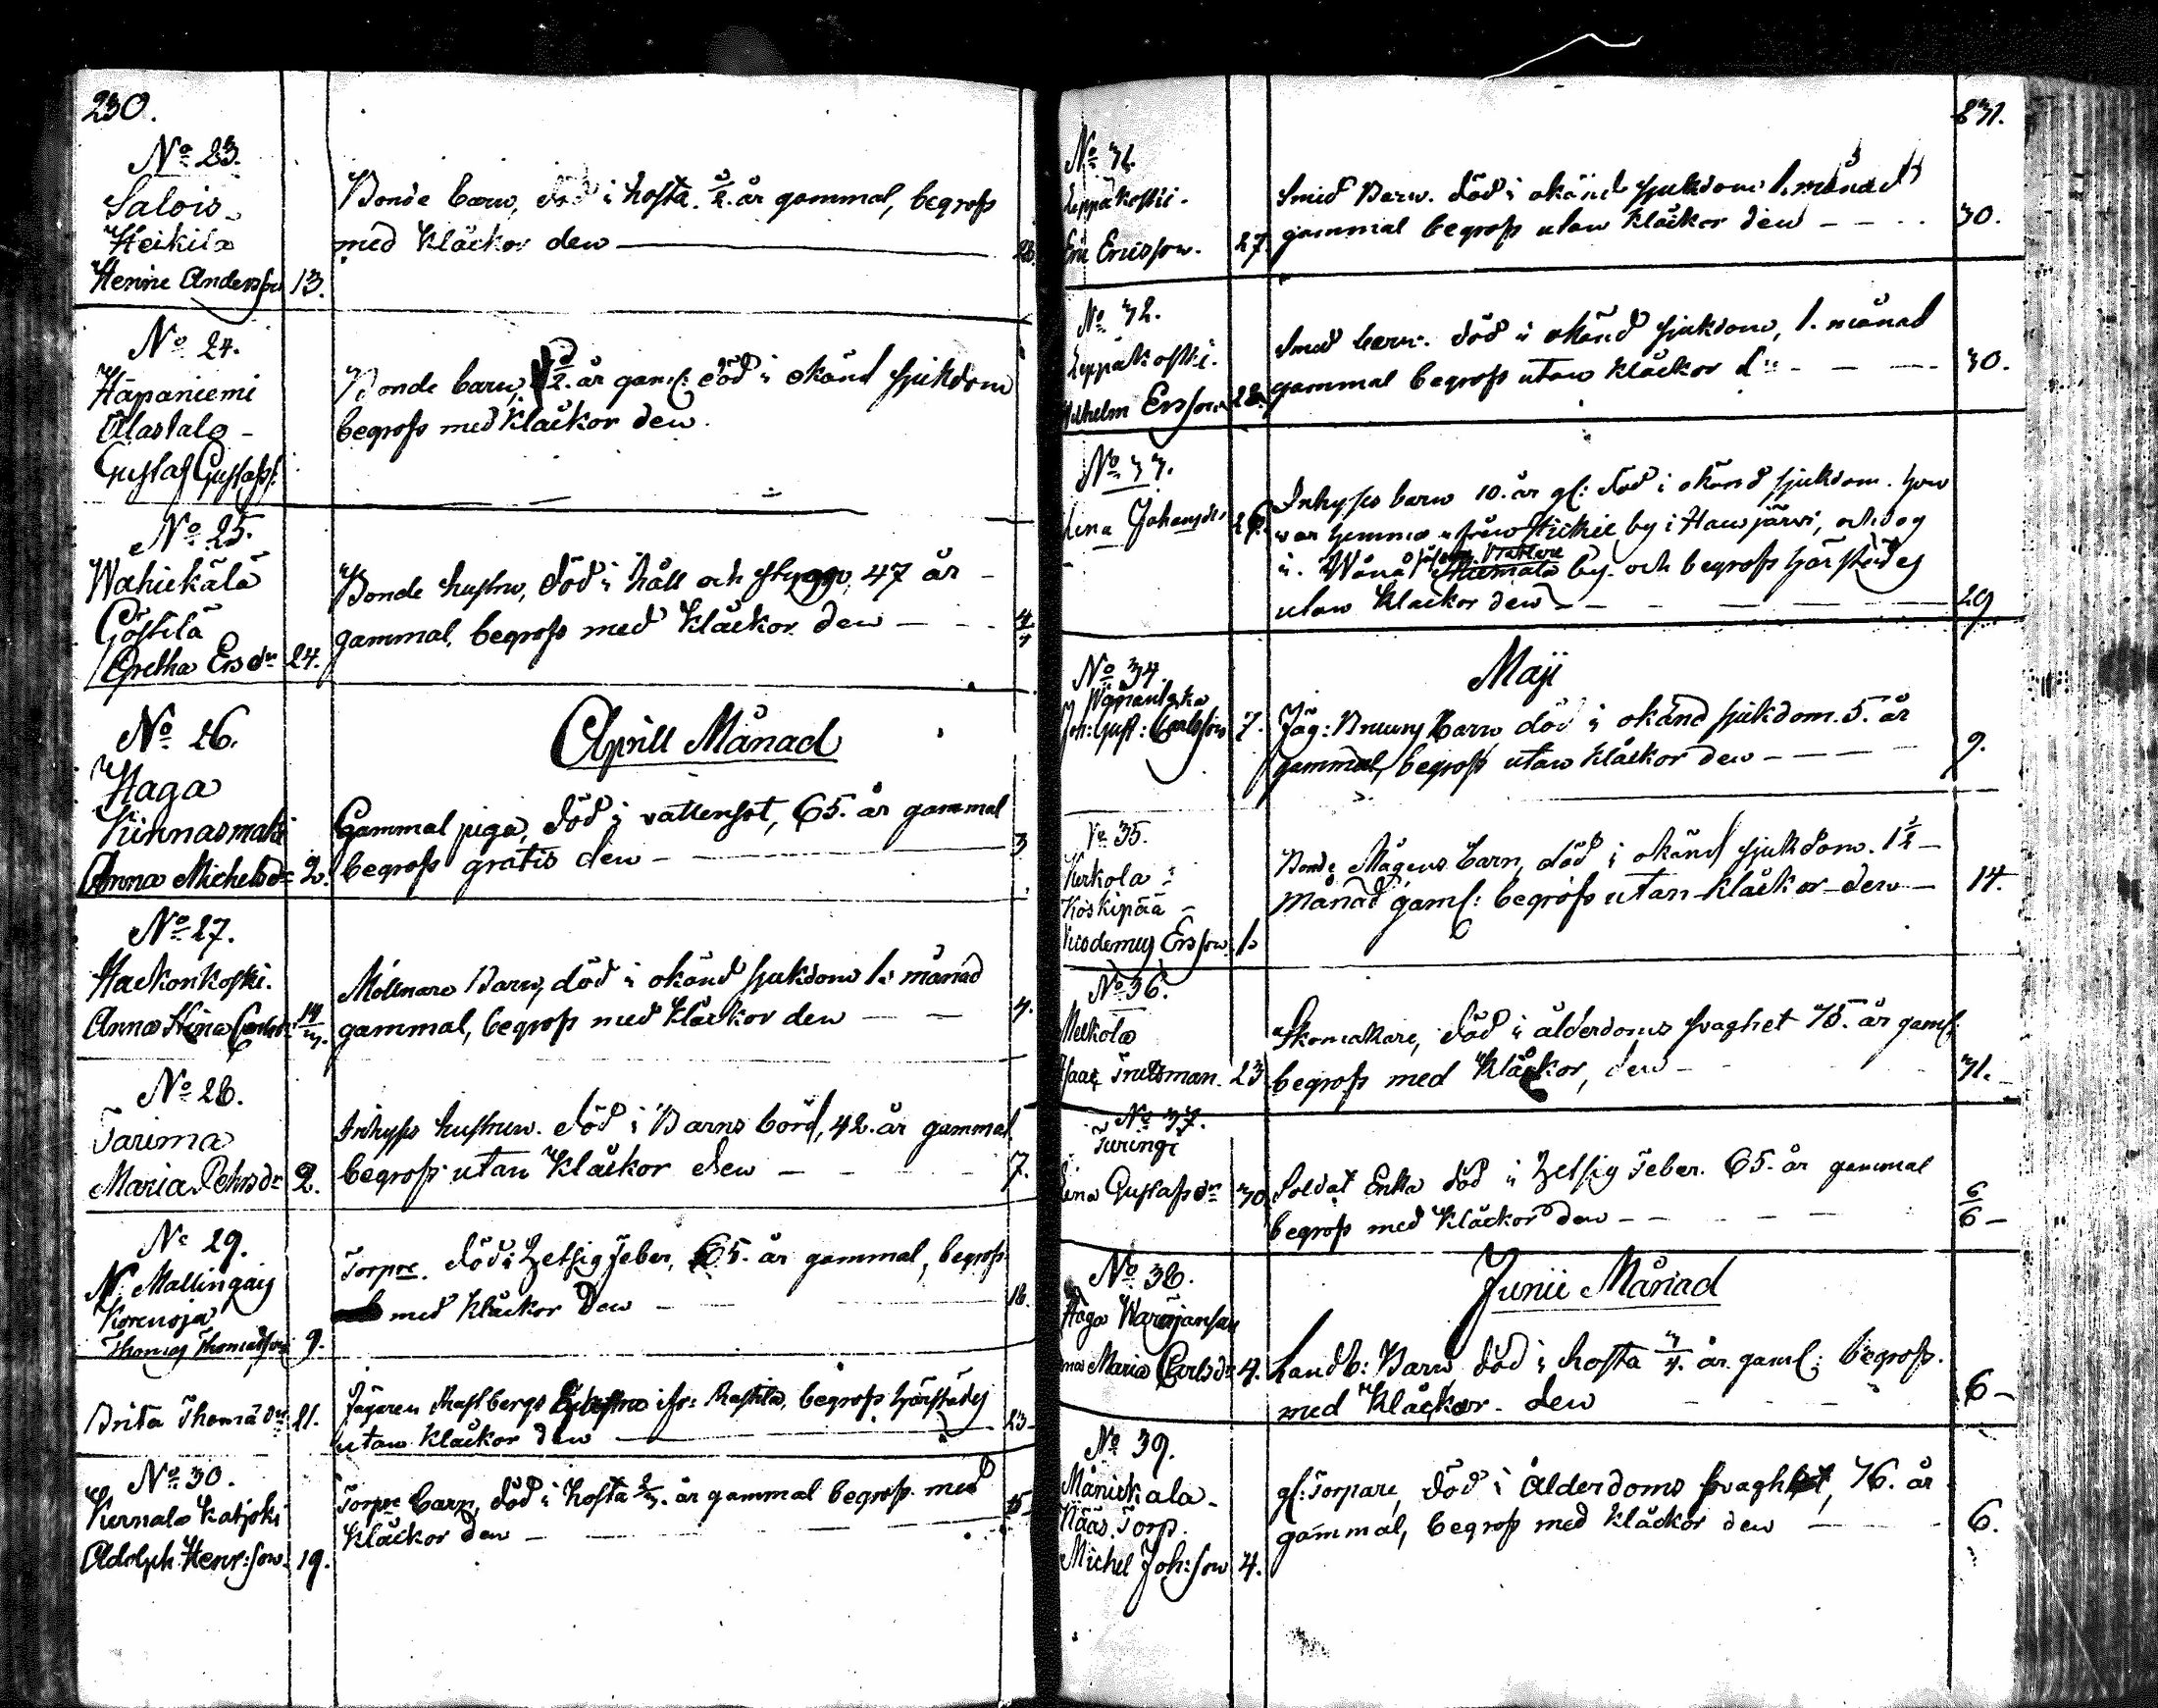 230.
No 23.
Salois
Heikilä
Henric Andersson 13.
Bonde barn, död i hosta ½ år gammal, begrofs
med Klåckor den
No 24.
Hapaniemi
Ollastalo
Gustaf Gustafss:
Bonde barn, ½ år gaml: död i okänd sjukdom
begrofs med Klåckor den
No 25.
Wahickälä
Göstilä
Gretha Ersdr 24.
Bonde hustru, död i håll och stygg, 47 år
gammal, begrofs med Klåckor den
No 26.
Haga
Anna Michelsdr 2.
Aprill Månad
Gammal piga, död i vattensot, 65. år gammal
begrofs gratis den 3
No 27.
Hackonkoski.
Anna Stina
Möllnare Barn, död i okänd sjukdom 1. månad
gammal, begrofs med Klåckor den 4.
No 28.
Tarima
Maria Pehrsdr 2.
Inhyses hustru. död i Barns börd, 42. år gammal
begrofs utan Klåckor den 7.
No 29.
Korenoja
Thomas Thomasson 9.
Torpre. död i Hetsig Feber, 65. år gammal, begrofs
med Klåckor den 18.
Brita Thomædr 21.
Jägaren begrofs härstädes
utan Klåckor den 23
No 30.
Kernala
Adolph Henr:son 19.
Torpre barn, död i hosta år gammal begrofs med
Klåckor den
231.
No 31.
Leppäkoski.
Eric Ericsson. 27.
Smed Barn. död i okänd sjukdom 1. månad
gammal begrofs utan Klåckor den 30.
No 32.
Leppäkoski.
Wilhelm Ersson 28.
Smed barn. död i okänd sjukdom, 1. månad
gammal begrofs utan Klåckor dn 30.
No 33.
Lena Johansdr
Inhyses barn 10. år gl: död i okänd sjukdom. som
var hemma ifrån Hickie by i Hausjärvi, och dog
i Wånå by. och begrofs härstädes
utan Klackor den 29
Maji
No 34.
Joh: Gust: Carlsson 7.
Jäg: Barn död i okänd sjukdom. 5. år
gammal, begrofs utan Klåckor den 9.
No 35.
Kerkola
Koskipää
Nicodemus Ersson 1.
Bonde Mågens barn, död i okänd sjukdom. 1½
Månad gaml: begrofs utan Klåckor den 14.
No 36.
Melkola
Isaac 23
Skomakare, död i ålderdoms svaghet 78. år gaml:
begrofs med Klåckor, den 31.
No 37.
Turingi
Lena Gustafsdr 30.
Soldat Enka död i Hetsig Feber. 65. år gammal
begrofs med Klåckor den 6/6
No 38.
Haga Warajansuu
Anna Maria Carlsdr 4.
Junii Månad
Landb: Barn död i hosta ¾. år gaml: begrofs.
med Klåckor. den 6
No 39.
Mänickala.
Nääs Torp.
Michel Joh:son 4.
gl: Torpare, död i Ålderdoms svaghet, 76. år
gammal, begrofs med Klåckor den 6.